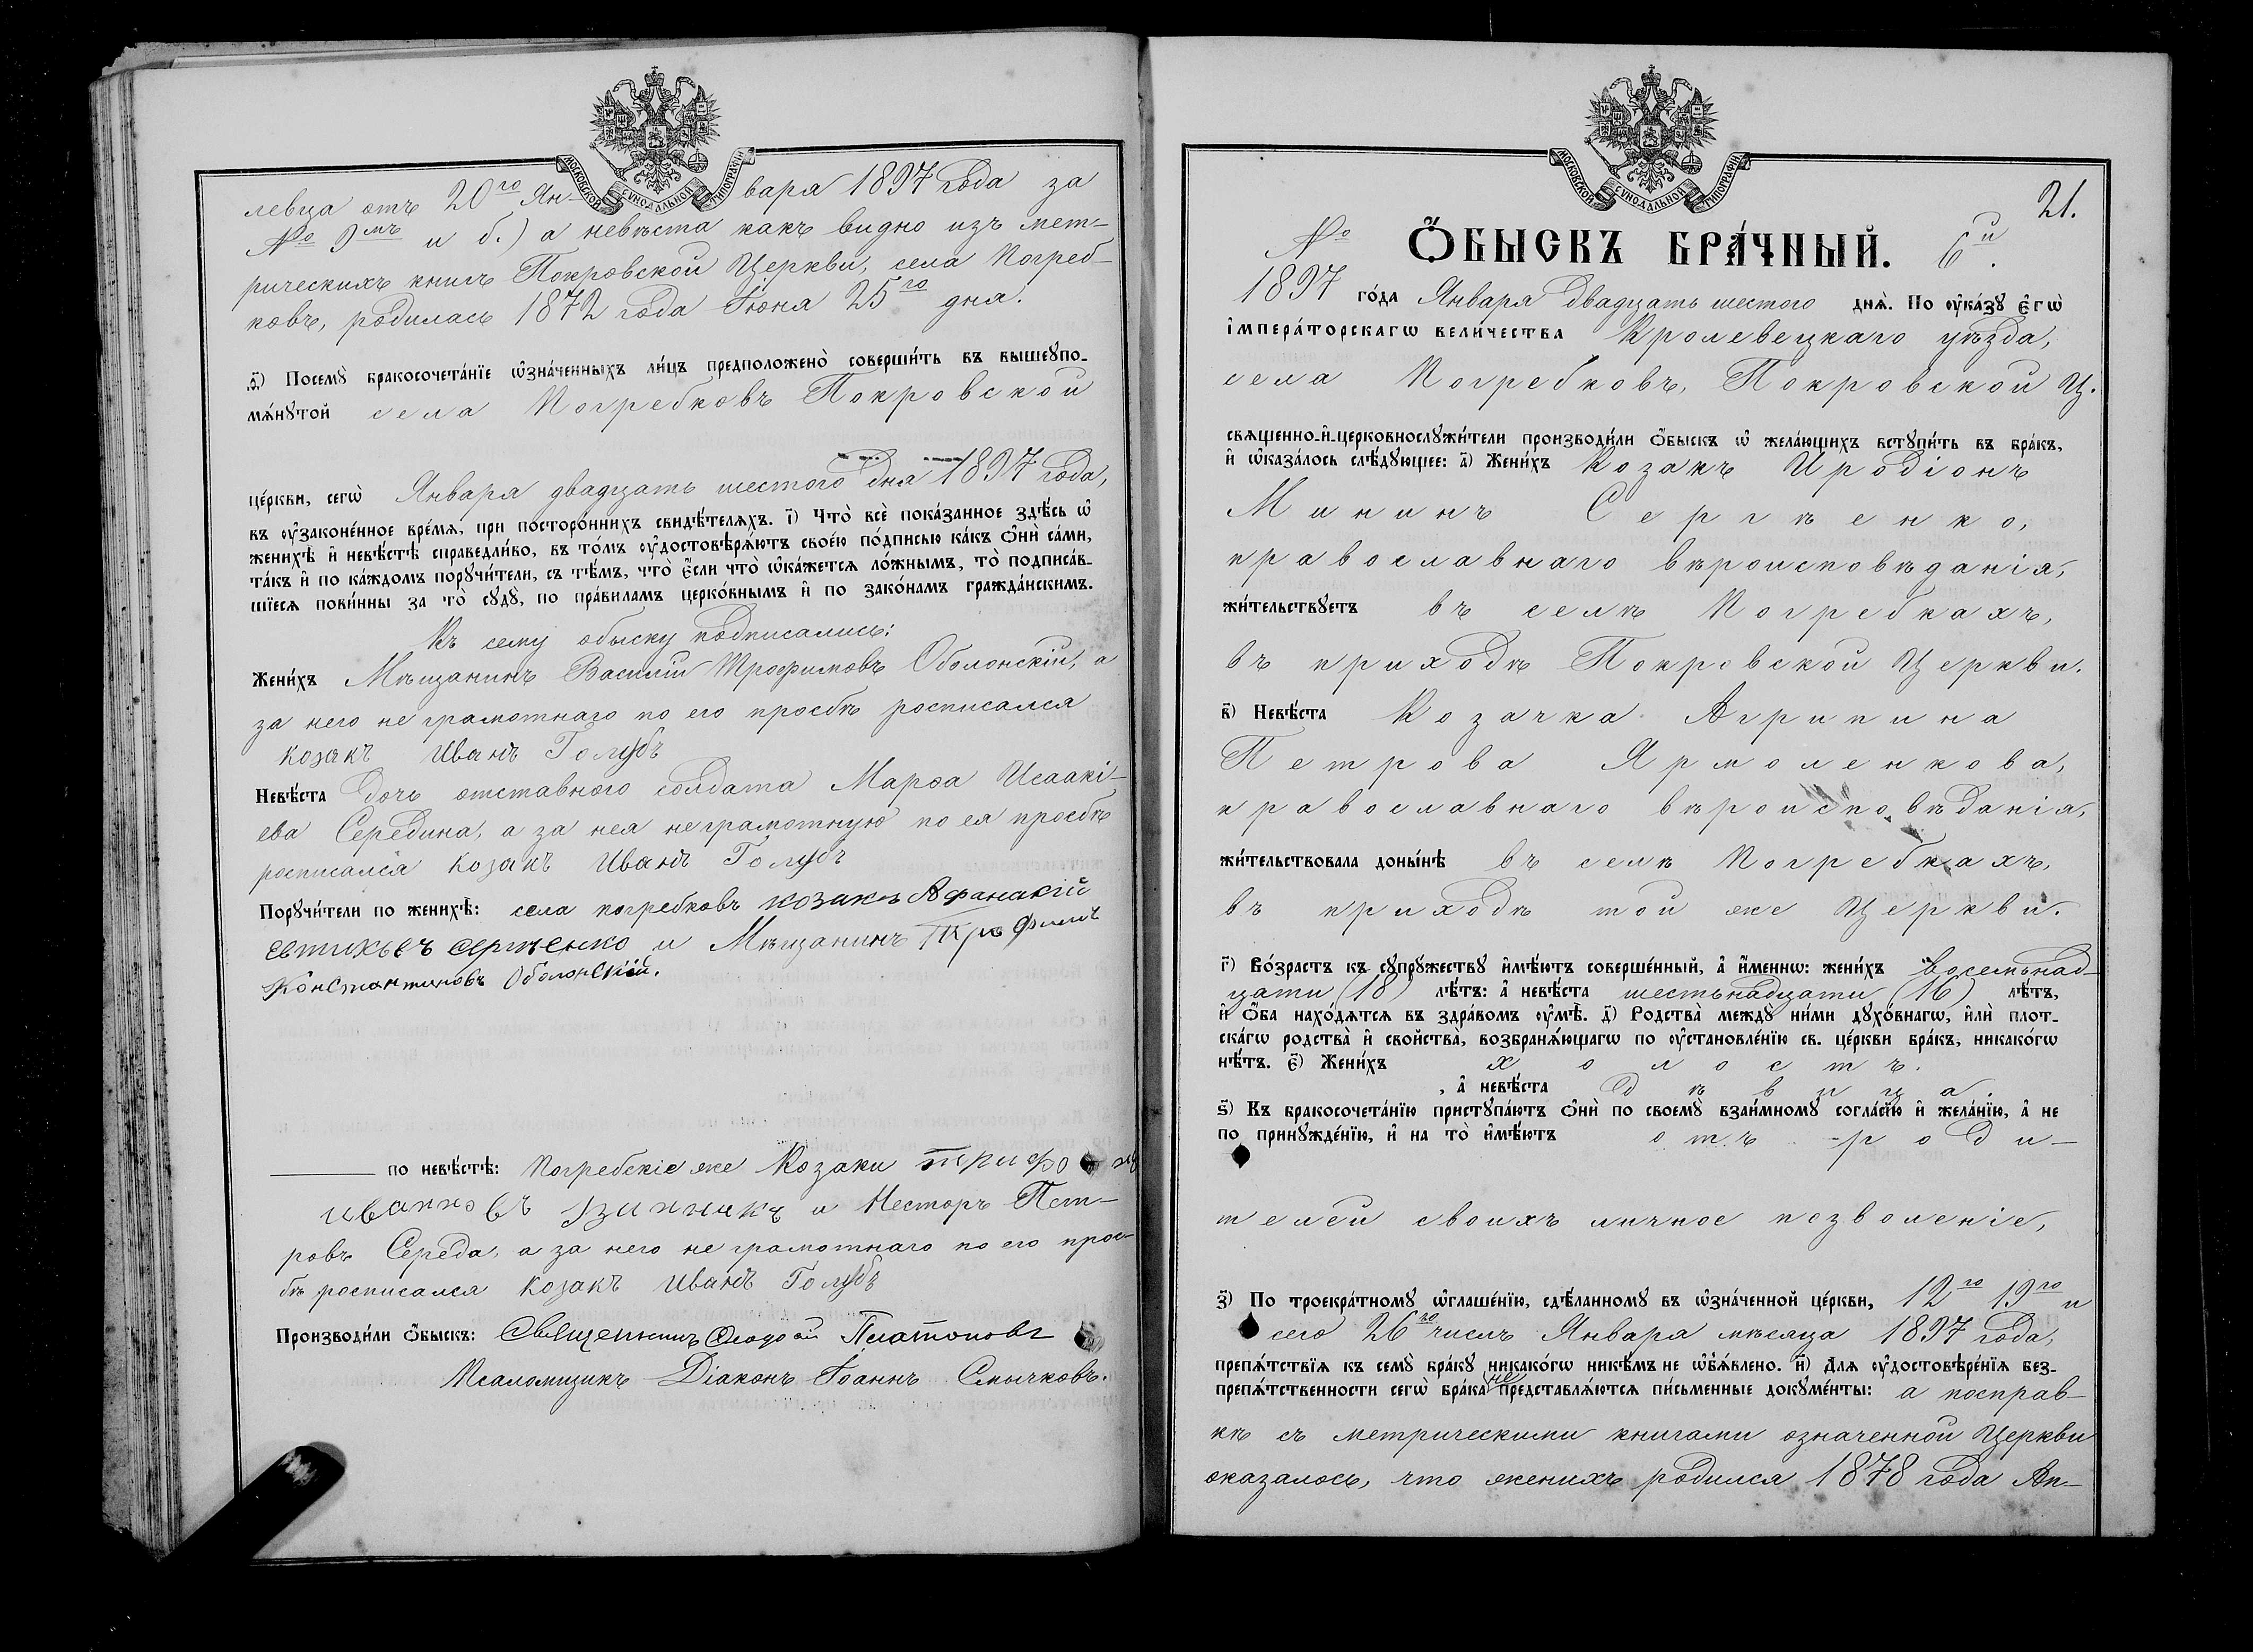 МОСКОВСКОЙ СѴНОДАЛЬНОЙ ТИПОГРАФІИ
левца отъ 20го Января 1897 года за
№ 9мъ и б.) а невѣста какъ видно изъ мет-
рическихъ книгъ Покровской Церкви, села Погреб-
ковъ, родилась 1872 года Іюня 25го дня.
д҃) Посемꙋ̀ бракосочета́нїе ѡ҆зна́ченныхъ ли́цъ предположено̀ соверши́ть въ вышеꙋпо-
мѧ́нꙋтой села Погребковъ Покровской
це́ркви, сегѡ̀ Января двадцать шестого дня 1897 года,
въ ᲂу҆законе́нное вре́мѧ, при посторо́ннихъ свидѣ́телѧхъ. і҃) Что̀ всѐ пока́занное здѣ́сь ѡ҆
женихѣ̀ и҆ невѣ́стѣ справедли́во, въ то́мъ ᲂу҆достовѣрѧ́ютъ свое́ю по́дписью ка́къ ѻ҆нѝ са́ми,
та́къ и҆ по ка́ждомъ порꙋчи́тели, съ тѣ́мъ, что̀ є҆́сли что̀ ѡ҆ка́жетсѧ ло́жнымъ, то̀ подписа́в-
шїесѧ пови́нны за то̀ сꙋдꙋ̀, по пра́виламъ церко́внымъ и҆ по зако́намъ гражда́нскимъ.
Къ сему обыску подписались:
Жени́хъ Мѣщанинъ Василій Трофимовъ Оболонскій, а
за него не грамотнаго по его просбѣ росписался
козакъ Иванъ Голубъ
Невѣ́ста дочь отставного солдата Марѳа Исаакі-
ева Середина, а за нея неграмотную по ея просбѣ
росписался козакъ Иванъ Голубъ
Порꙋчи́тели по женихѣ̀: села погребковъ козакъ Афанасій
евтихьевъ сергѣенко и Мѣщанинъ Трофимъ
Константиновъ Оболонскій.
по невѣ́стѣ: Погребскіе же Козаки
ивановъ и Несторъ Пет-
ровъ Середа, а за него не грамотнаго по его прос-
бѣ росписался козакъ Иванъ Голубъ
Производи́ли ѻ҆́быскъ: Священникъ Платоновъ
Псаломщикъ Діаконъ Іоаннъ Смычковъ.
МОСКОВСКОЙ СѴНОДАЛЬНОЙ ТИПОГРАФІИ
21.
№ Ѻ҆́БЫСКЪ БРА́ЧНЫЙ. 6й.
1897 го́да Января двадцать шестого днѧ̀. По ᲂу҆ка́зꙋ є҆гѡ̀
і҆мпера́торскагѡ вели́чества Кролевецкаго уѣзда,
села Погребковъ, Покровской Ц.
свѧщенно-и҆-церковнослꙋжи́тели производи́ли ѻ҆́быскъ ѡ҆ жела́ющихъ встꙋпи́ть въ бра́къ,
и҆ ѡ҆каза́лось слѣ́дꙋющее: а҃) Жени́хъ Козакъ Иродіонъ
Мининъ Сергѣенко,
православнаго вѣроисповѣданія,
жи́тельствꙋетъ въ селѣ Погребкахъ,
въ приходѣ Покровской Церкви.
в҃) Невѣ́ста Козачка Агрипина
Петрова Ярмоленкова,
православнаго вѣроисповѣданія,
жи́тельствовала доны́нѣ въ селѣ Погребкахъ,
въ приходѣ той же Церкви.
г҃) Во́зрастъ къ сꙋпрꙋ́жествꙋ и҆мѣ́ютъ соверше́нный, а҆ и҆́меннѡ: жени́хъ восемьнад-
цати (18) лѣ́тъ: а҆ невѣ́ста шестьнадцати (16) лѣ́тъ,
и҆ ѻ҆́ба нахо́дѧтсѧ въ здра́вомъ ᲂу҆мѣ̀. д҃) Родства̀ междꙋ̀ ни́ми дꙋхо́внагѡ, и҆лѝ плот-
ска́гѡ родства̀ и҆ свойства̀, возбранѧ́ющагѡ по ᲂу҆становле́нїю св. це́ркви бра́къ, никако́гѡ
нѣ́тъ. є҃) Жени́хъ холостъ.
, а҆ невѣ́ста дѣвица.
ѕ҃) Къ бракосочета́нїю пристꙋпа́ютъ ѻ҆нѝ по своемꙋ̀ взаи́мномꙋ согла́сїю и҆ жела́нїю, а҆ не
по принꙋжде́нїю, и҆ на то̀ и҆мѣ́ютъ отъ роди-
телей своихъ личное позволеніе,
з҃) По троекра́тномꙋ ѡ҆глаше́нїю, сдѣ́ланномꙋ въ ѡ҆зна́ченной це́ркви, 12го 19го и
сего 26го числъ Января мѣсяца 1897 года,
препѧ́тствїѧ къ семꙋ̀ бра́кꙋ никако́гѡ никѣ́мъ не ѡ҆б̾ѧ́влено. и҃) Для ᲂу҆достовѣре́нїѧ без-
препѧ́тственности сегѡ̀ бра́ка не представлѧ́ютсѧ пи́сьменные докꙋме́нты: а посправ-
кѣ съ метрическими книгами означенной Церкви
оказалось, что женихъ родился 1878 года Ап-